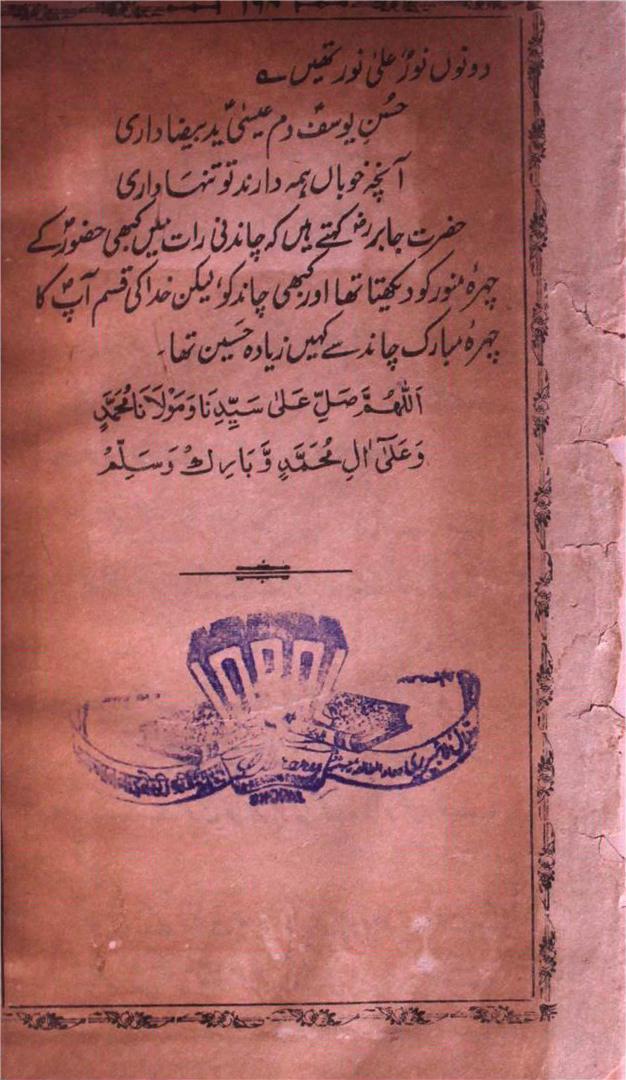 دونوں نورٌ علیٰ نور تھیں ؎
حُسنِ یوسفؑ دم عیسیٰؑ یدِ بیضا داری
آنچہ خوباں ہمہ دارند تو تنہا داری
حضرت جابر رضؓ کہتے ہیں کہ چاندنی رات میں کبھی حضورؐ کے
چہرۂ منور کو دیکھتا تھا اور کبھی چاند کو، لیکن خدا کی قسم آپؐ کا
چہرۂ مبارک چاند سے کہیں زیادہ حَسین تھا۔
اَللّٰهُمَّ صَلِّ عَلىٰ سَيِّدِنَا وَمَوْلَانَا مُحَمَّدٍ
وَعَلىٰٓ اٰلِ مُحَمَّدٍ وَّبَارِكْ وَسَلِّمْ
BHOPAL